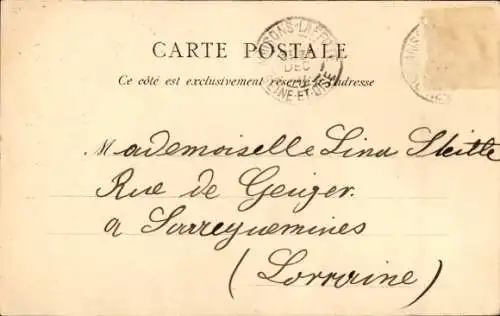 CARTE POSTALE
Ce côté est exclusivement réservé à l'adresse
DEC
Mademoiselle Lina
Rue de Geiger.
à Sarreguemines
(Lorraine)